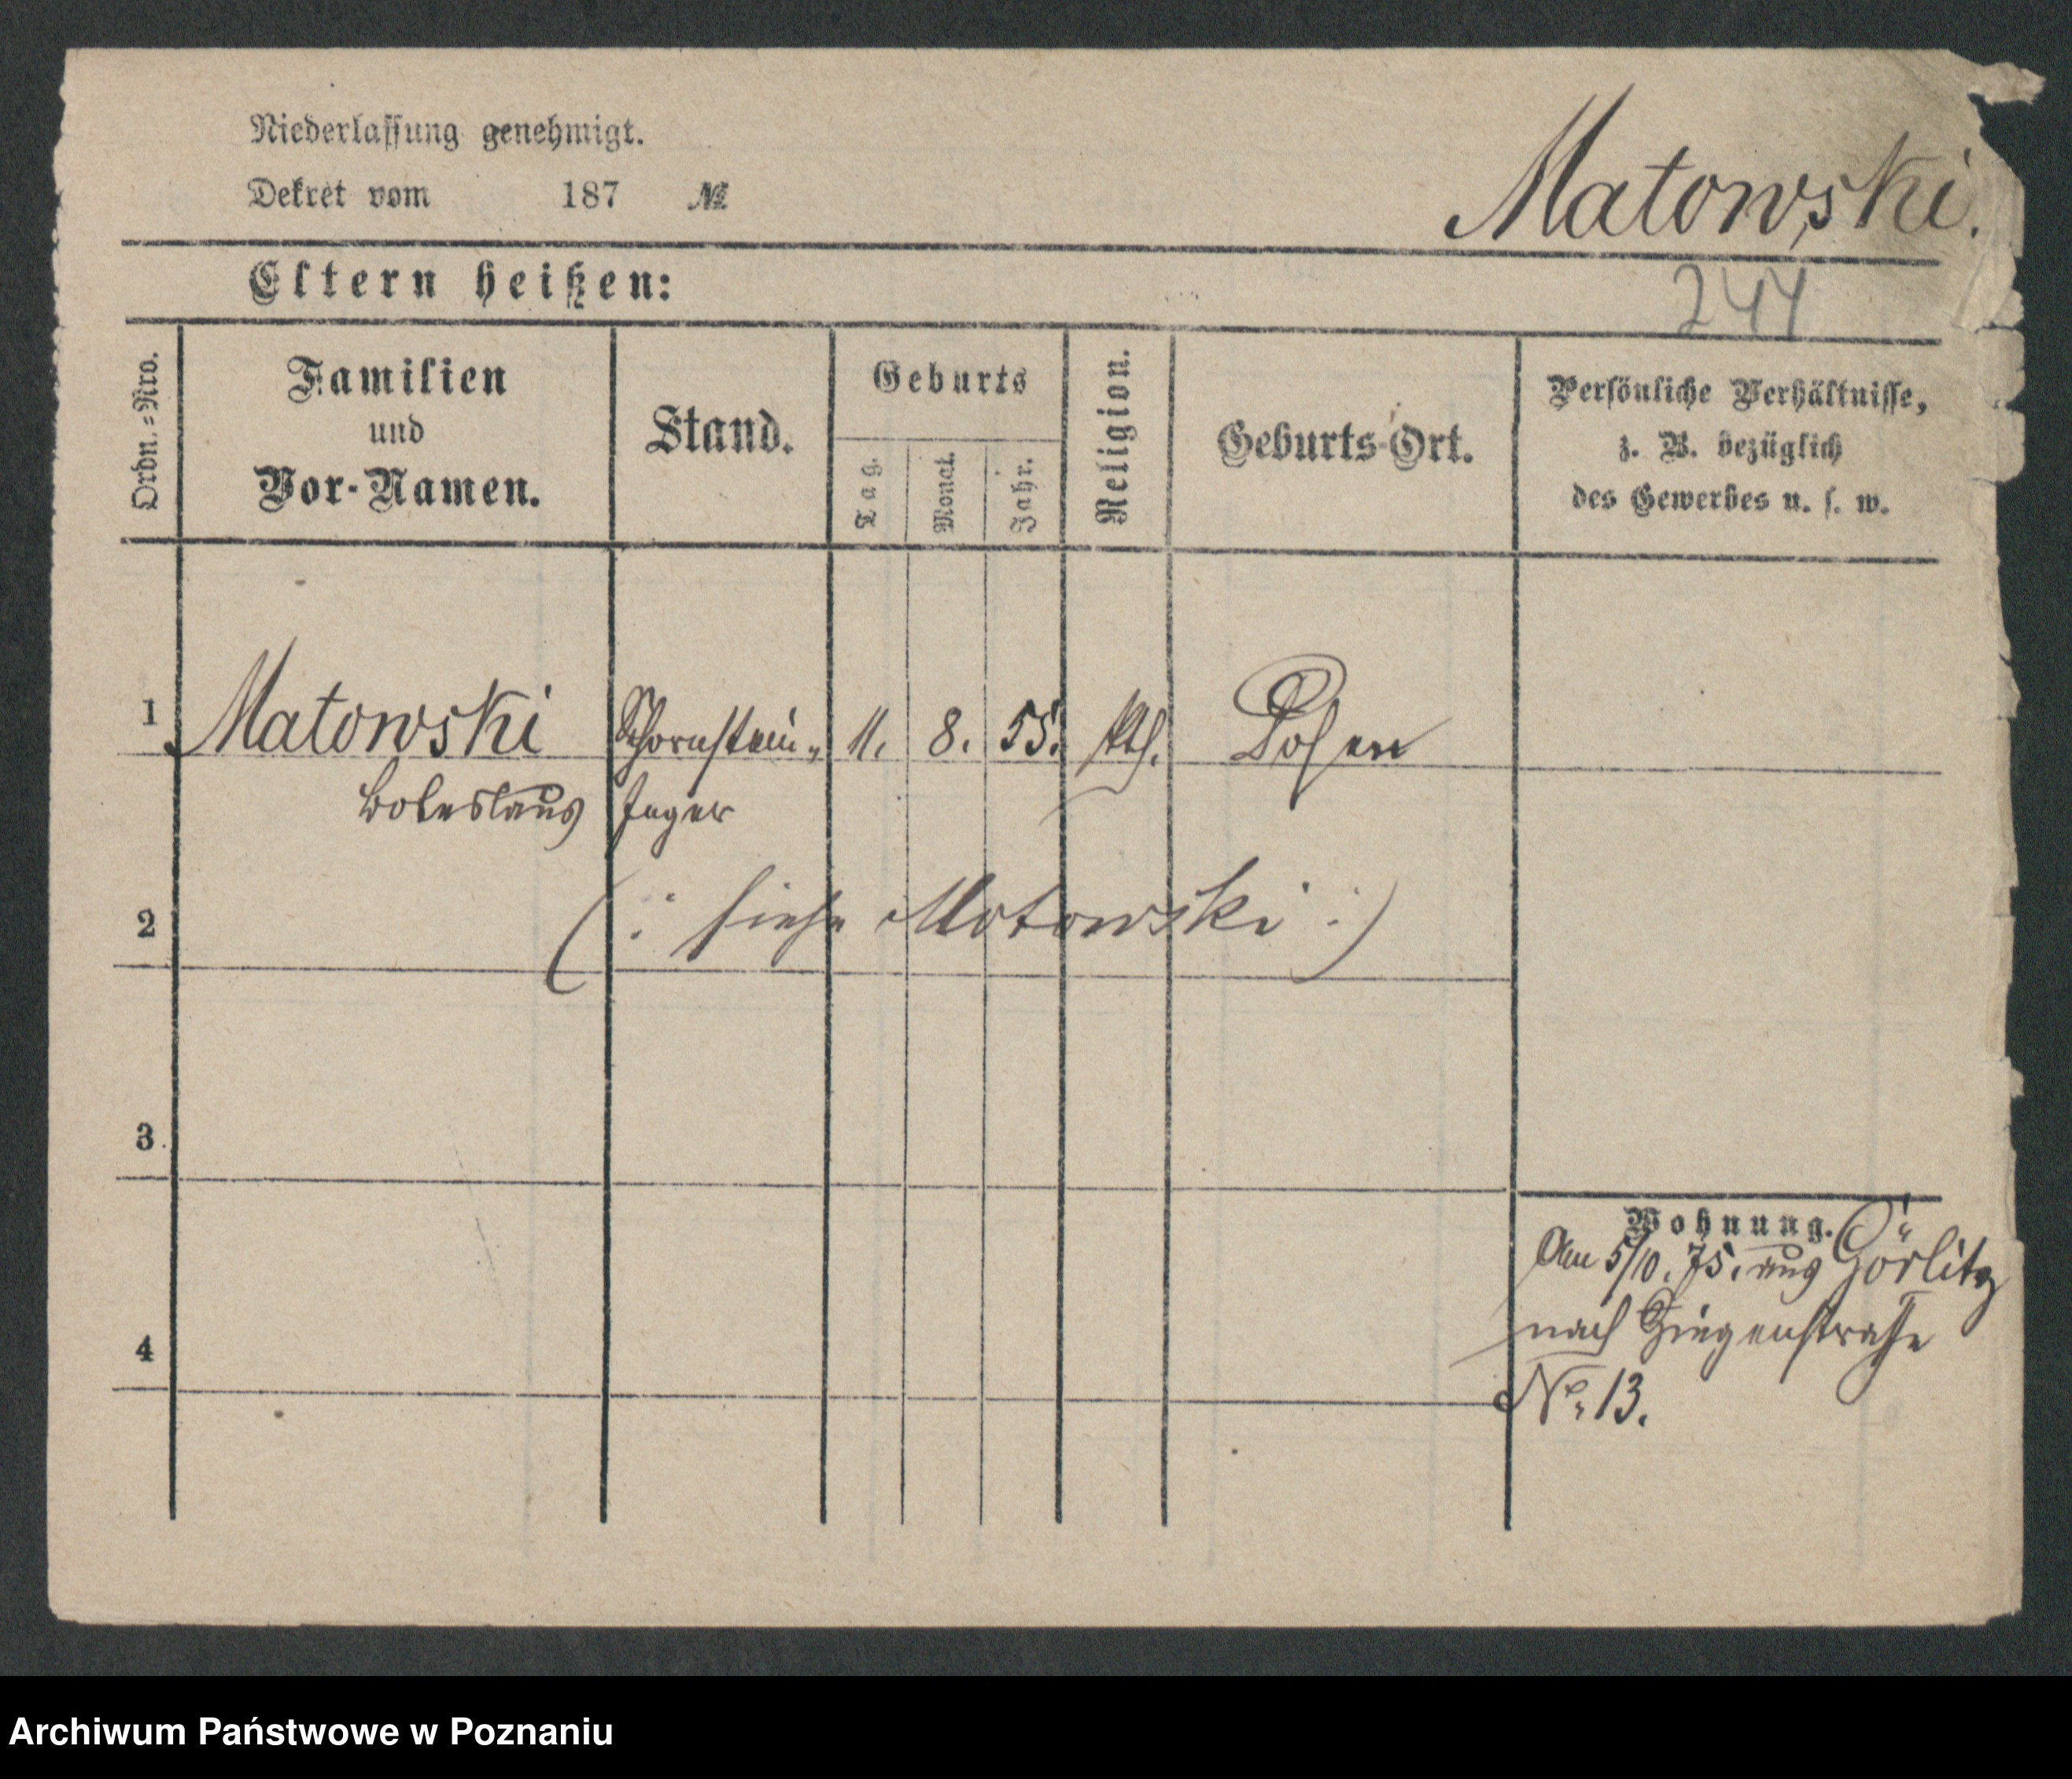 Niederlassung genehmigt.
Dekret vom 187 №
Matowski.
Eltern heißen:
244
Ordn.=Nro.
Familien
und
Vor-Namen.
Stand.
Geburts
Tag.
Monat.
Jahr.
Religion.
Geburts-Ort.
Persönliche Verhältnisse,
z. B. bezüglich
des Gewerbes u. s. w.
1 Matowski Schornstein= 11. 8. 55. kth. Posen
Boleslaus feger
2 (: siehe Motowski :)
3.
4
Wohnung.
Am 5/10. 75. aus Görlitz
nach Ziegenstraße
No. 13.
Archiwum Państwowe w Poznaniu